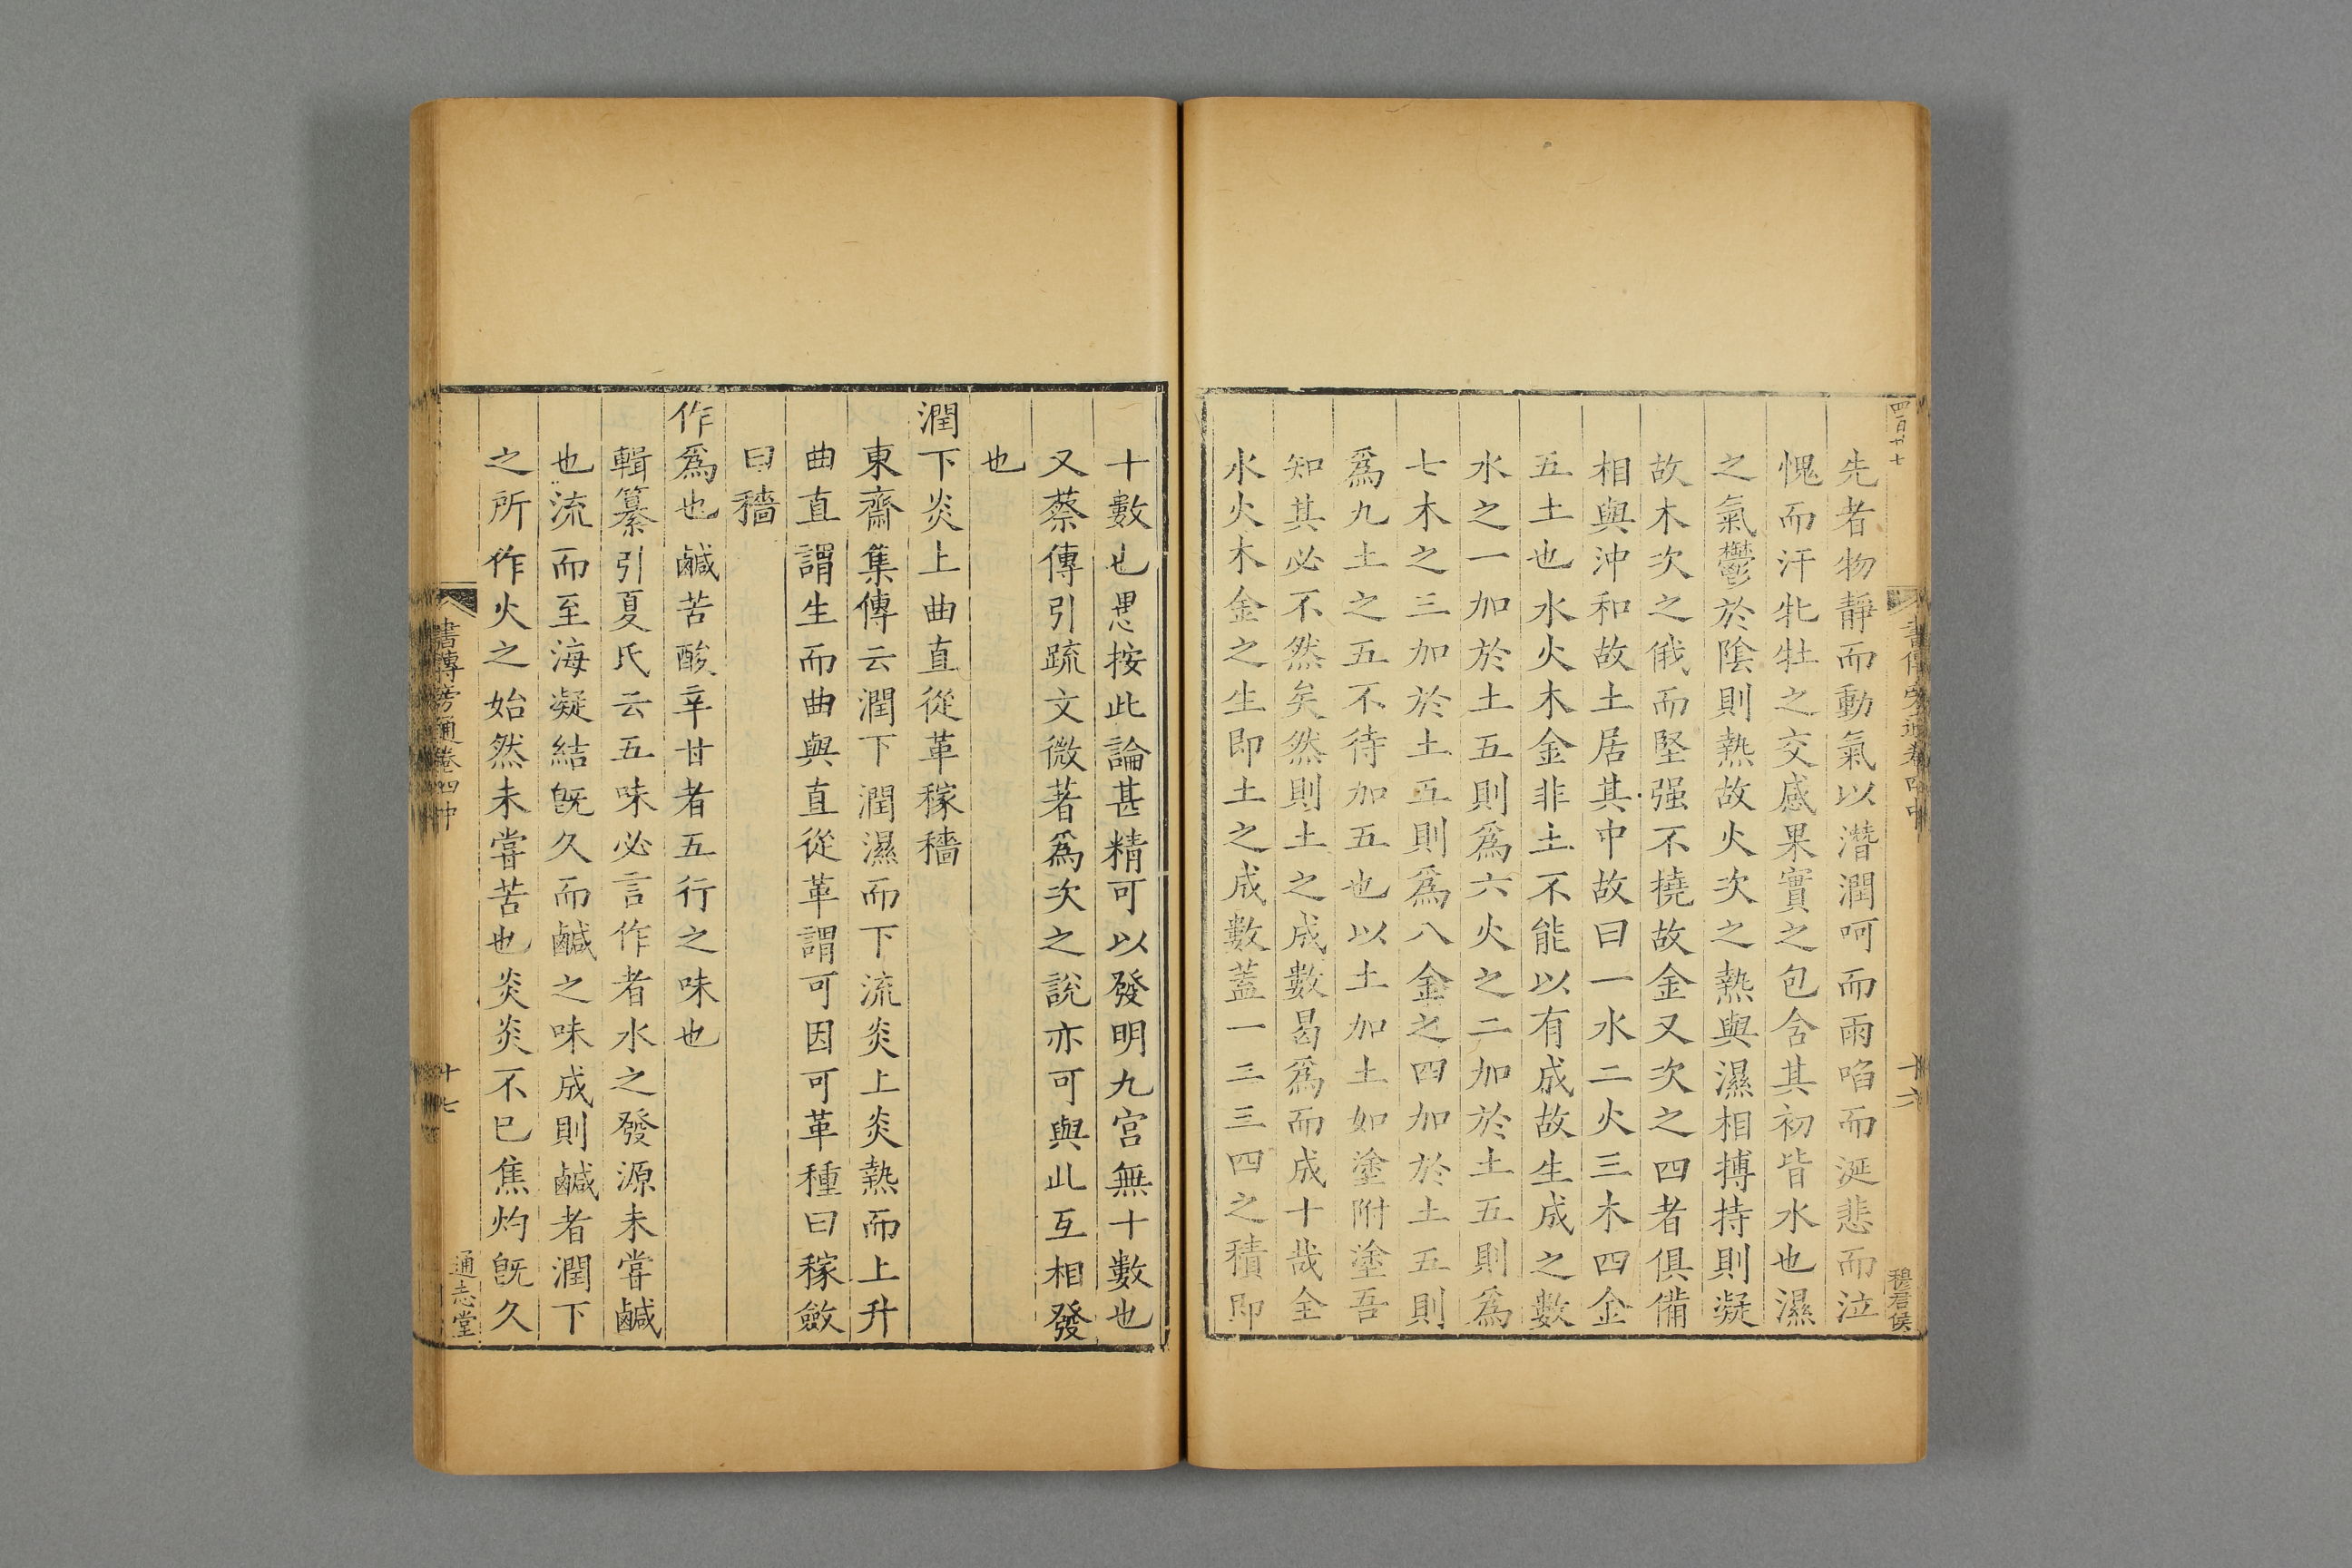 四百七七
書傳旁通卷四中
十六
穆君侯
先者物靜而動氣以潛潤呵而雨㗖而涎悲而泣
愧而汗牝牡之交感果實之包含其初皆水也濕
之氣鬱於陰則熱故火次之熱與濕相搏持則凝
故木次之俄而堅强不撓故金又次之四者俱備
相與沖和故土居其中故曰一水二火三木四金
五土也水火木金非土不能以有成故生成之數
水之一加於土五則爲六火之二加於土五則爲
七木之三加於土五則爲八金之四加於土五則
爲九土之五不待加五也以土加土如塗附塗吾
知其必不然矣然則土之成數曷爲而成十哉全
水火木金之生即土之成數蓋一二三四之積即
十數也愚按此論甚精可以發明九宮無十數也
又蔡傳引疏文微著爲次之說亦可與此互相發
也
潤下炎上曲直從革稼穡
東齋集傳云潤下潤濕而下流炎上炎熱而上升
曲直謂生而曲與直從革謂可因可革種曰稼斂
曰穡
作爲也鹹苦酸辛甘者五行之味也
輯纂引夏氏云五味必言作者水之發源未嘗鹹
也流而至海凝結旣久而鹹之味成則鹹者潤下
之所作火之始然未嘗苦也炎炎不已焦灼旣久
書傳旁通卷四中
十七
通志堂